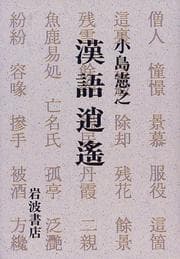 僧人 憧憬 景慕 服役 這箇
這裏 除却 残花 餘景
小島憲之
漢語逍遙
残雪 丹霞 二親
魚鹿易処 亡名氏 孤亭 泛灔
紛紛 容喙 摻手 被酒 方纔
岩波書店